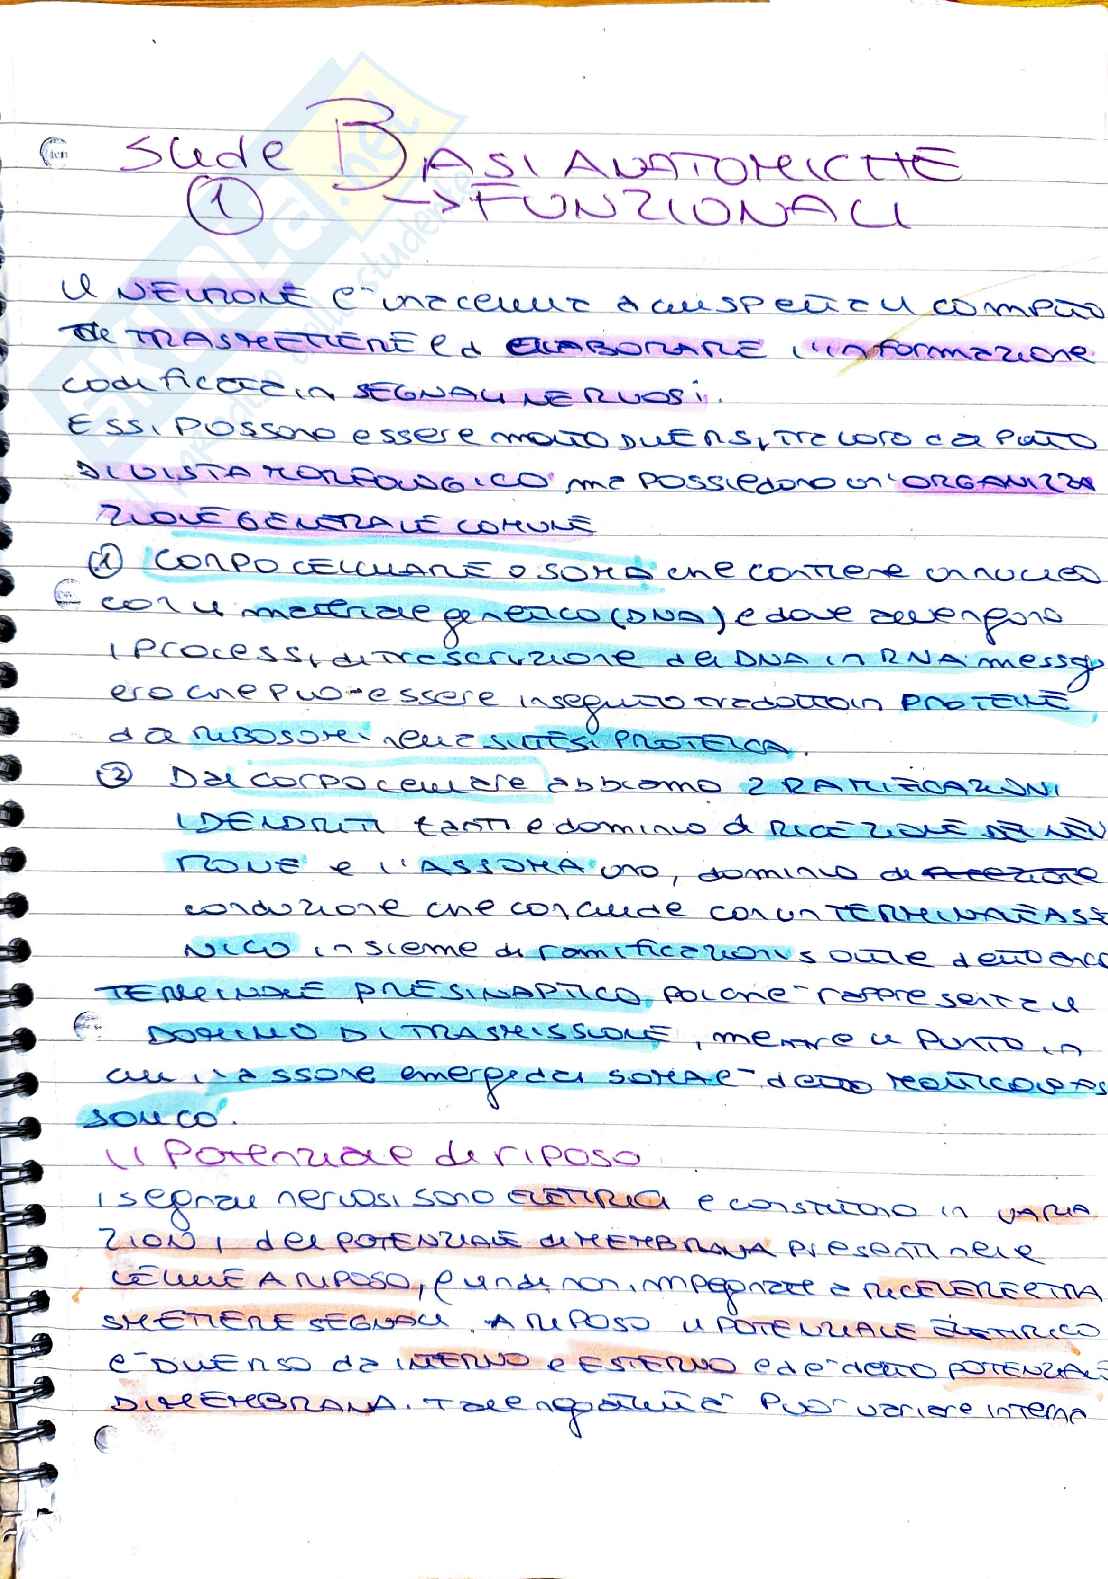 slide BASI ANATOMICHE
1 → FUNZIONALI
il NEURONE è una cellula a cui spetta il compito
TRASMETTERE ed ELABORARE l'informazione
codificata in SEGNALI NERVOSI.
ESSI POSSONO essere molto DIVERSI tra loro dal PUNTO
DI VISTA MORFOLOGICO ma POSSIEDONO un'ORGANIZZA
ZIONE GENERALE COMUNE
1 CORPO CELLULARE o SOMA che contiene un nucleo
con il materiale genetico (DNA) e dove avvengono
i PROCESSI di trascrizione del DNA in RNA messagg
ero che può essere in seguito tradotto in PROTEINE
dai RIBOSOMI nella SINTESI PROTEICA.
2 Dal corpo cellulare abbiamo 2 RAMIFICAZIONI
I DENDRITI tanti e dominio di RICEZIONE DEL NEU
RONE e l'ASSONE uno, dominio di ricezione
conduzione che conclude con un TERMINALE ASSO
NICO insieme di ramificazioni sottili detto anche
TERMINALE PRESINAPTICO poiché rappresenta il
DOMINIO DI TRASMISSIONE, mentre il PUNTO in
cui l'assone emerge dal SOMA è detto MONTICOLO AS
SONICO.
Il Potenziale di riposo
i segnali nervosi sono ELETTRICI e consistono in VARIA
ZIONI del POTENZIALE di MEMBRANA presenti nelle
CELLULE A RIPOSO, quindi non impegnate a RICEVERE E TRA
SMETTERE SEGNALI. A RIPOSO il POTENZIALE ELETTRICO
è DIVERSO da INTERNO e ESTERNO ed è detto POTENZIALE
DI MEMBRANA. Tale negatività può variare in terms